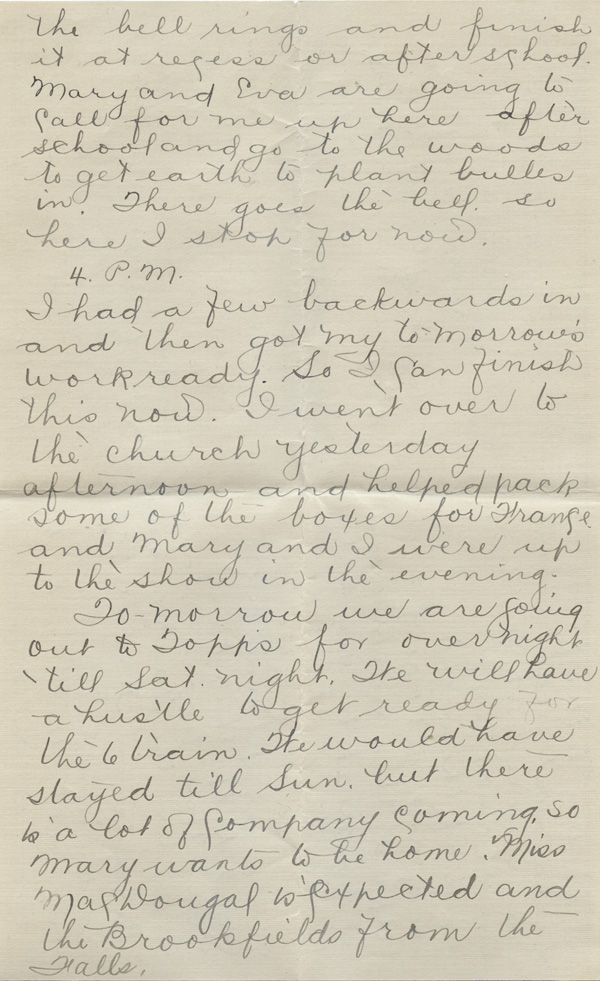 the bell rings and finish
it at recess or after school.
Mary and Eva are going to
call for me up here after
school and go to the woods
to get earth to plant bulbs
in. There goes the bell. so
here I stop for now.
4. P.M.
I had a few backwards in
and then got my to-morrow's
work ready. So I can finish
this now. I went over to
the church yesterday
afternoon and helped pack
some of the boxes for France
and Mary and I were up
to the show in the evening.
To-morrow we are going
out to Topps for over night
'till Sat. night. We will have
a hustle to get ready for
the 6 train. We would have
stayed till Sun. but there
is a lot of Company coming, so
Mary wants to be home. Miss
MacDougal is expected and
the Brookfields from the
Falls.